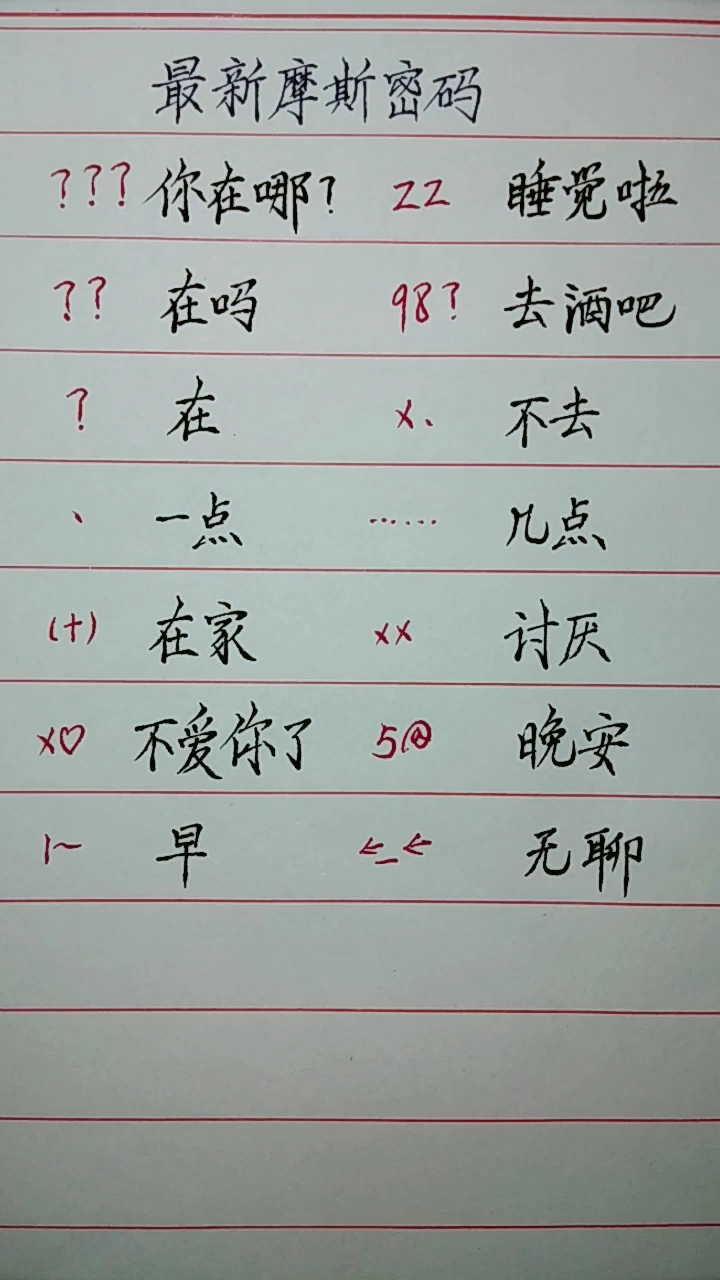 最新摩斯密码
??? 你在哪? ZZ 睡觉啦
?? 在吗 98? 去酒吧
? 在 x、 不去
、 一点 …… 几点
(+) 在家 xx 讨厌
x♡ 不爱你了 5@ 晚安
1~ 早 ←_← 无聊